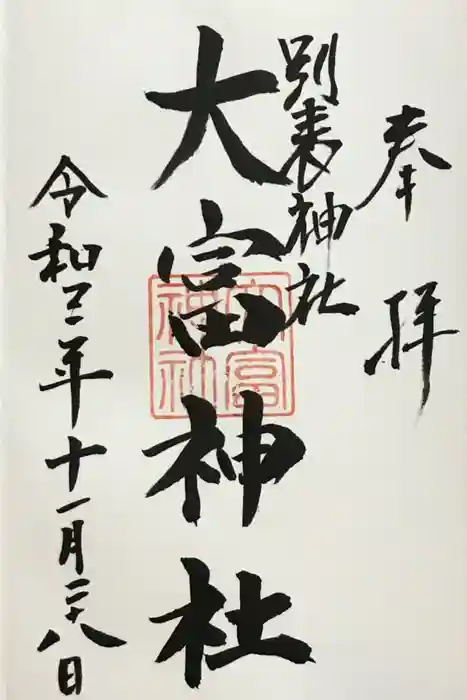 奉拝
別表神社
大宮神社
大宮
神社
令和三年十一月二十八日